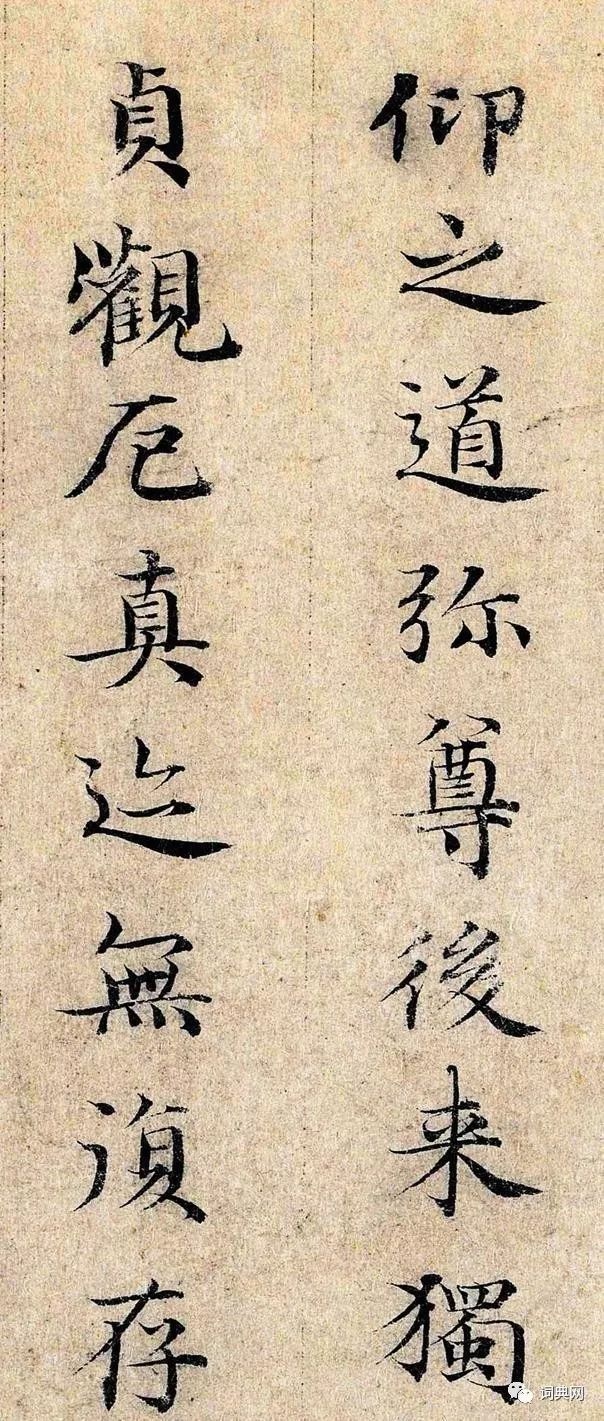 仰之道弥尊後来獨
貞觀厄真迹無復存
词典网